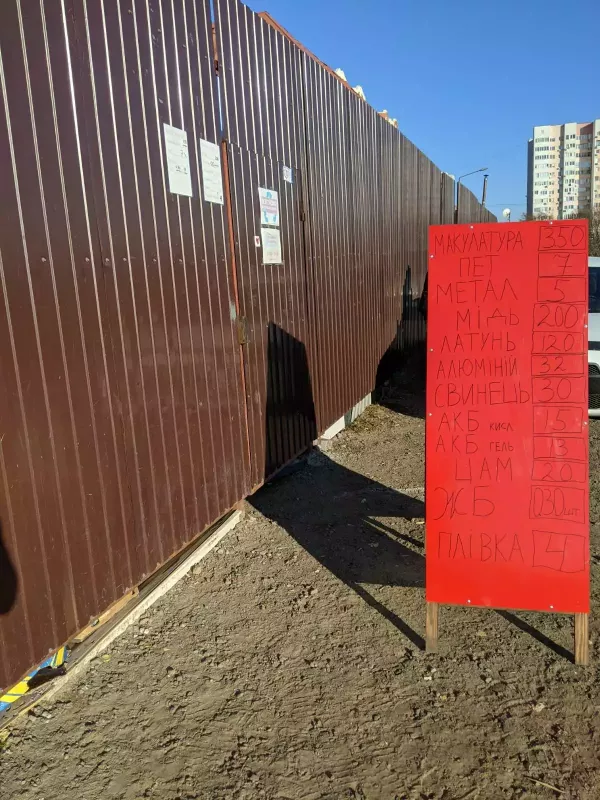 МАКУЛАТУРА 350
ПЕТ 7
МЕТАЛ 5
МІДЬ 200
ЛАТУНЬ 120
АЛЮМІНІЙ 32
СВИНЕЦЬ 30
АКБ КИСЛ 15
АКБ ГЕЛЬ 13
ЦАМ 20
ЖБ 030шт.
ПЛІВКА 4